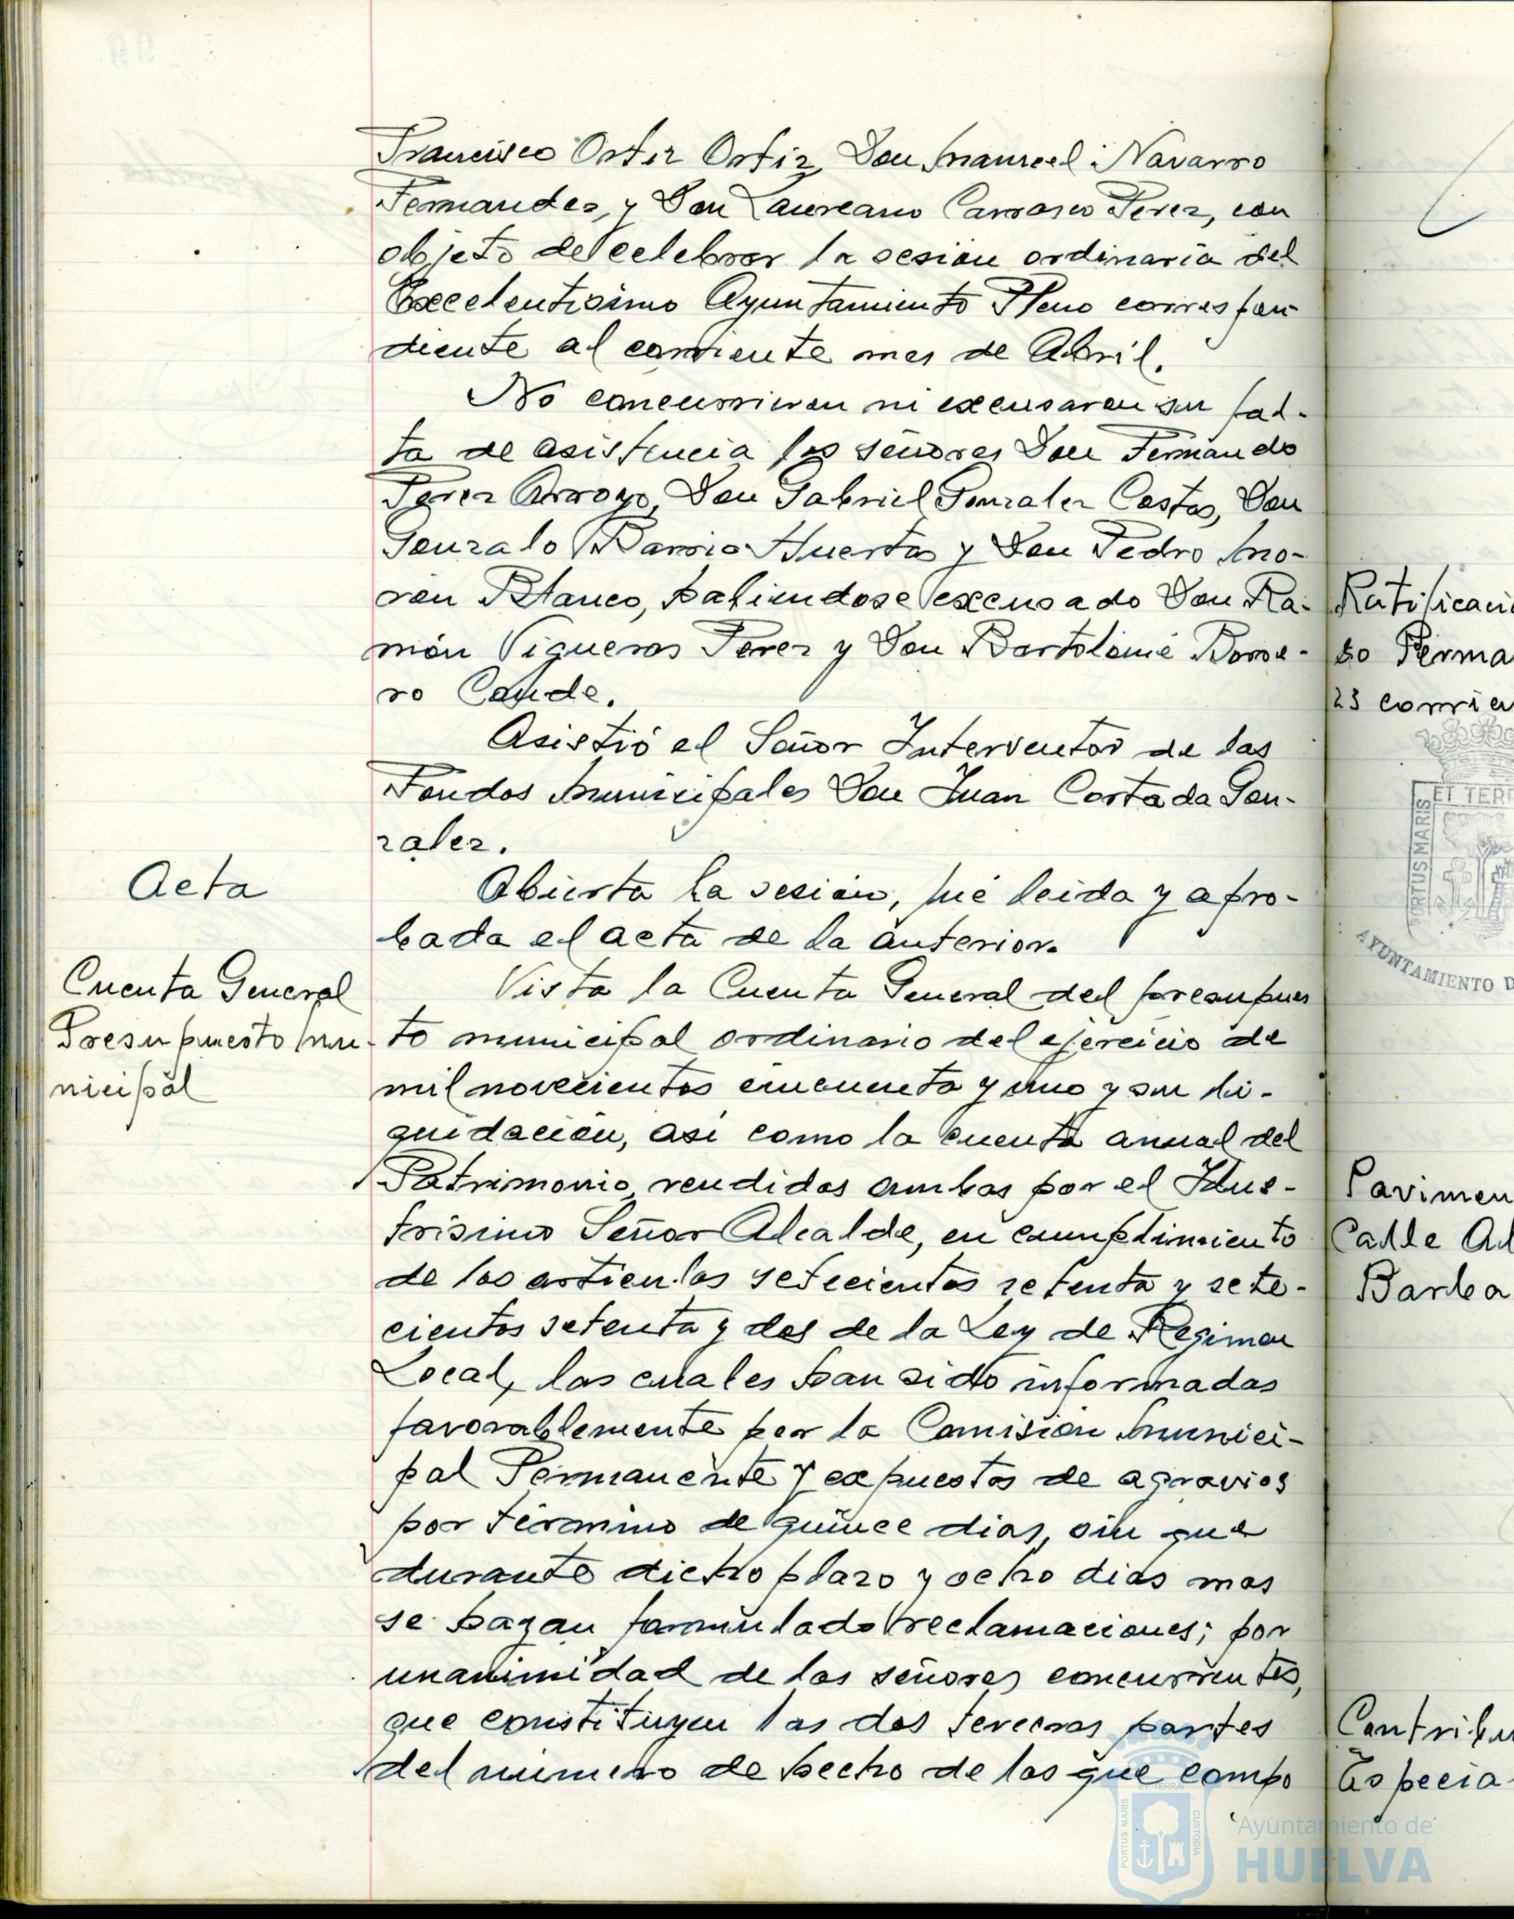 Francisco Ortiz Ortiz, Don Manuel Navarro
Fernandez, y Don Laureano Carrasco Perez, con
objeto de celebrar la sesión ordinaria del
Excelentisimo Ayuntamiento Pleno correspon-
diente al corriente mes de Abril.
No concurrieron ni excusaron su fal-
ta de asistencia los señores Don Fernando
Perez Arroyo, Don Gabriel Gonzalez Costas, Don
Gonzalo Barrio Huerta y Don Pedro Mo-
rón Blanco, habiendose excusado Don Ra-
món Vigueras Perez y Don Bartolomé Borre-
ro Conde.
Asistió el Señor Interventor de los
Fondos Municipales Don Juan Cortada Gon-
zalez.
Acta
Abierta la sesión, fué leida y apro-
bada el acta de la anterior.
Cuenta General
Presupuesto Mu-
nicipal
Vista la Cuenta General del presupues
to municipal ordinario del ejercicio de
mil novecientos cincuenta y uno y su li-
quidación, asi como la cuenta anual del
Patrimonio, rendidas ambas por el Ilus-
trisimo Señor Alcalde, en cumplimiento
de los articulos setecientos setenta y sete-
cientos setenta y dos de la Ley de Regimen
Local, las cuales han sido informadas
favorablemente por la Comisión Munici-
pal Permanente y expuestos de agravios
por término de quince dias, sin que
durante dicho plazo y ocho dias mas
se hayan formulado reclamaciones; por
unanimidad de los señores concurrentes,
que constituyen las dos terceras partes
del número de hecho de los que compo
Ratificació
so Perma
23 corrien
ET TERR
PORTUS MARIS
AYUNTAMIENTO D
Pavimen
Calle Al
Barba
Contribu
Especia
ET TERRA
PORTUS MARIS
CUSTODIA
Ayuntamiento de
HUELVA